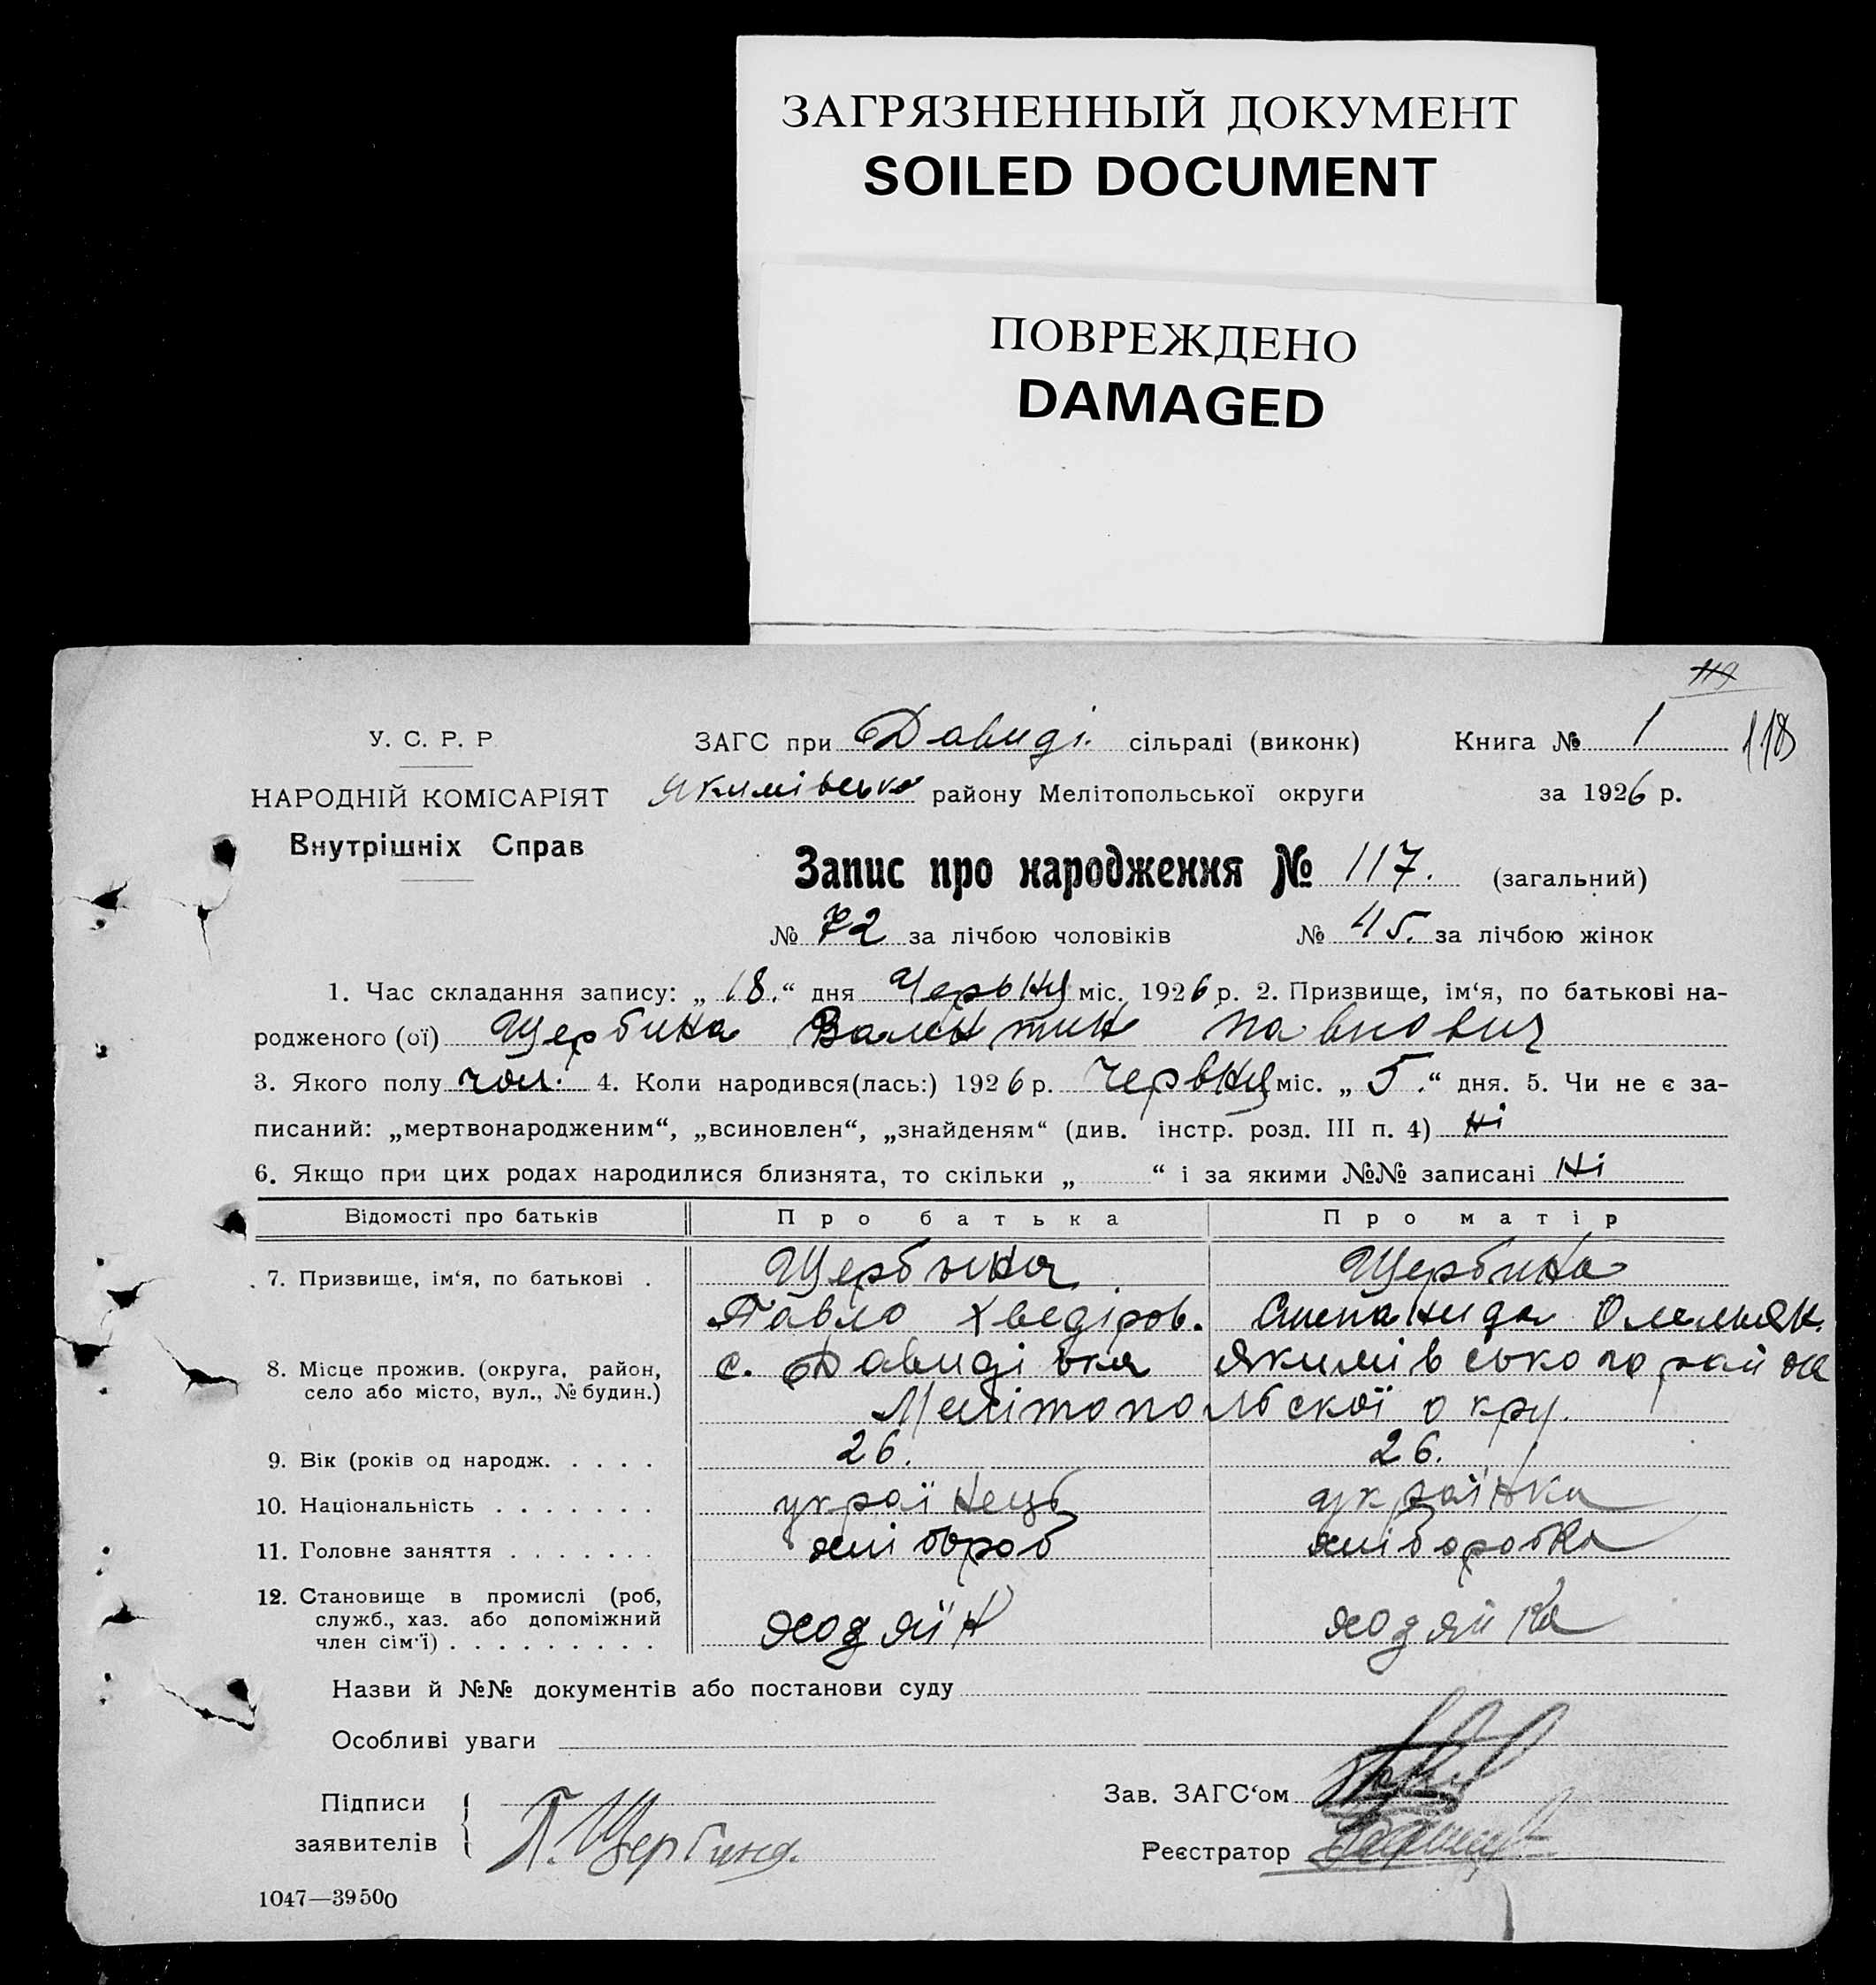 ЗАГРЯЗНЕННЫЙ ДОКУМЕНТ
SOILED DOCUMENT
ПОВРЕЖДЕНО
DAMAGED
119
У. С. Р. Р
ЗАГС при Давиді. сільраді (виконк) Книга № 1 118
НАРОДНІЙ КОМІСАРІЯТ Якимівсько району Мелітопольської округи за 1926 р.
Внутрішніх Справ
Запис про народження № 117. (загальний)
№ 72 за лічбою чоловіків № 45. за лічбою жінок
1. Час складання запису: „ 18.“ дня Червня міс. 1926 р. 2. Призвище, ім‘я, по батькові на-
родженого (ої) Щербина Валентин Павлович
3. Якого полу чол. 4. Коли народився(лась:) 1926 р. Червня міс. „ 5 .“ дня. 5. Чи не є за-
писаний: „мертвонародженим“, „всиновлен“, „знайденям“ (див. інстр. розд. III п. 4) Ні
6. Якщо при цих родах народилися близнята, то скільки „ “ і за якими №№ записані Ні
Відомості про батьків Про батька Про матір
7. Призвище, ім‘я, по батькові . Щербина Щербина
Павло Хведіров. Степанида Омельяк.
8. Місце прожив. (округа, район, с. Давидівка Якимівського райо
село або місто, вул., № будин.)
Мелітопольскої окру.
9. Вік (років од народж. . . . . 26. 26.
10. Національність . . . . . . . українець українка
11. Головне заняття . . . . . . . хлібороб хліборобка
12. Становище в промислі (роб,
служб., хаз. або допоміжний
член сім‘ї) . . . . . . . . . ходяїн ходяйка
Назви й №№ документів або постанови суду
Особливі уваги
Підписи
Зав. ЗАГС‘ом
заявителів П. Щербина.
Реєстратор
1047—39500